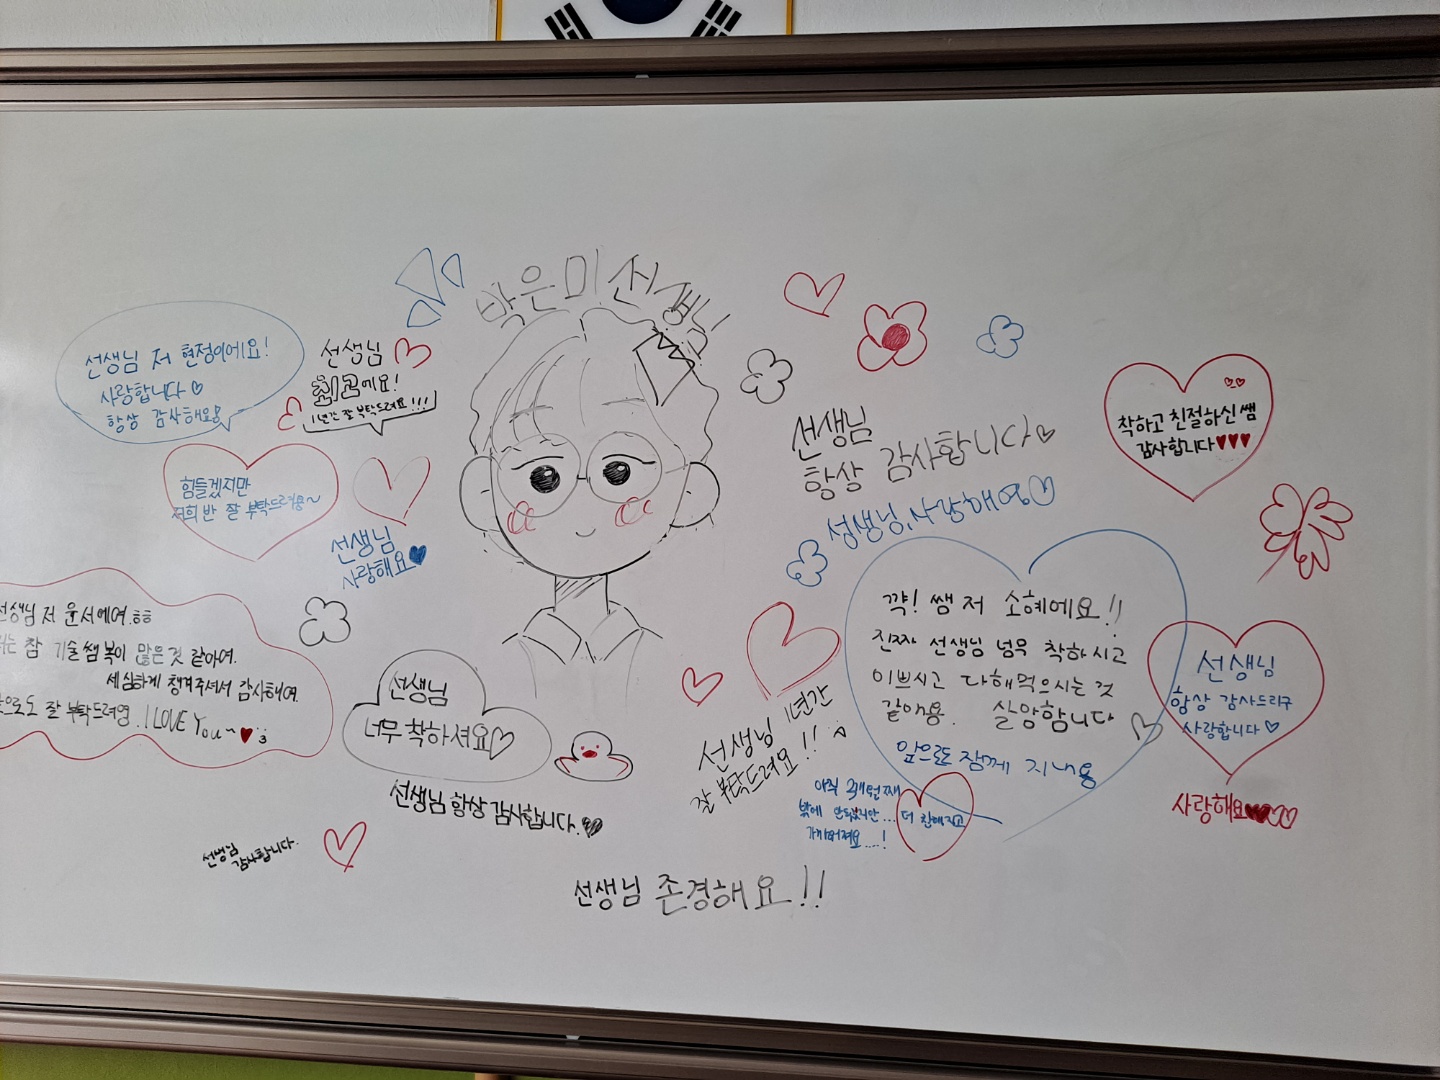 박은미 선생님
선생님 저 현정이에요!
사랑합니다 ♡
항상 감사해요!
선생님
최고예요!
1년간 잘 부탁드려요!!!
힘들겠지만
저희 반 잘 부탁드려용~
선생님
사랑해요♥
선생님 저 윤서에여.ㅎㅎ
는 참 기술쌤 복이 많은 것 같아여.
세심하게 챙겨주셔서 감사해여.
으로도 잘 부탁드려염. I LOVE You~♥
선생님
너무 착하셔요♡
선생님 항상 감사합니다.♥
선생님
감사합니다.
선생님
항상 감사합니다♡
성생님,사랑해요♡
착하고 친절하신 쌤
감사합니다♥♥♥
꺅! 쌤 저 소혜에요!!
진짜 선생님 넘우 착하시고
이쁘시고 다해먹으시는 것
같아용. 살앙함니다
앞으로 잠께 지내용
선생님
항상 감사드리구
사랑합니다♡
사랑해요♥♥♡♡
선생님 1년간
잘 부탁드려요!!
아직
밖에 안됬지만... 더 친해지고
가까워져요....!
선생님 존경해요!!